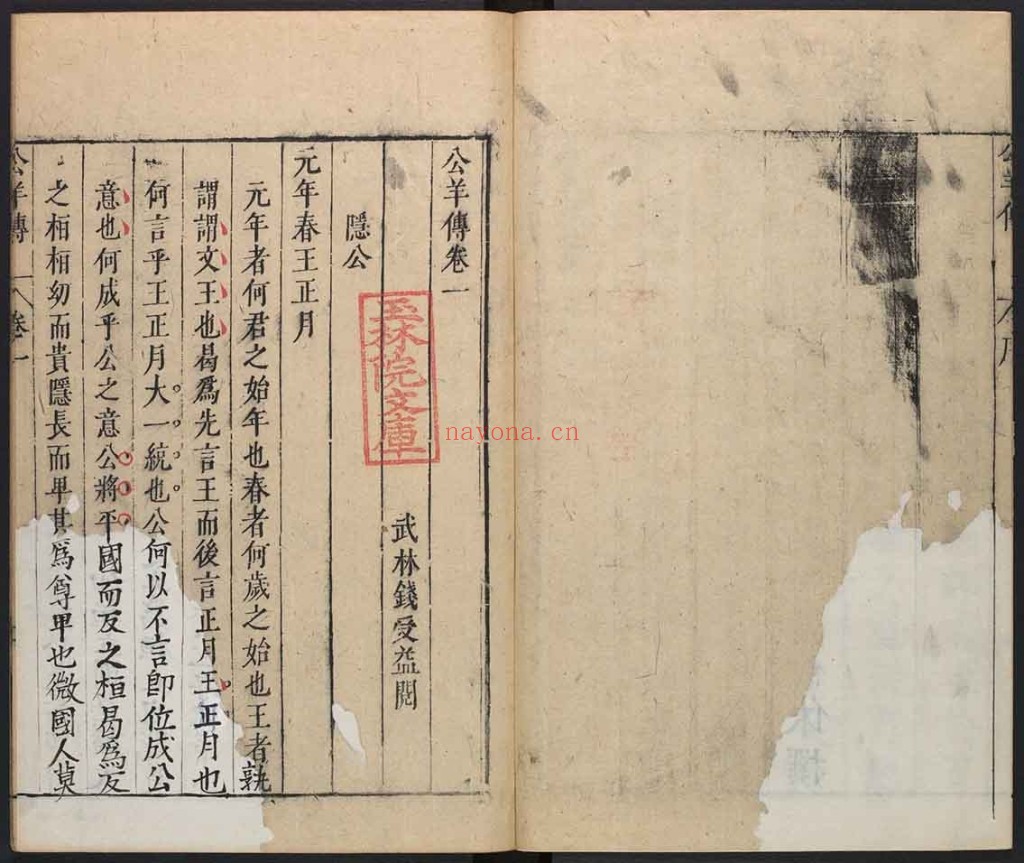 公羊傳卷一
武林錢受益閱
隱公
元年春王正月
元年者何君之始年也春者何歲之始也王者孰
謂謂文王也曷爲先言王而後言正月王正月也
何言乎王正月大一統也公何以不言卽位成公
意也何成乎公之意公將平國而反之桓曷爲反
之桓桓幼而貴隱長而卑其爲尊卑也微國人莫
公羊傳 卷一
玉林院文庫
nayona.cn
公羊傳
休撰